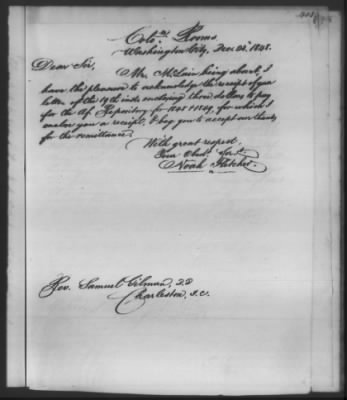 Colo. Rooms
Washington City, Dec 23, 1848.
Dear Sir,
Mr. McLain being absent, I
have the pleasure to acknowledge the receipt of your
letter of the 19th inst. enclosing three dollars to pay
for the Af. Repository for 1848 & 1849, for which I
enclose you a receipt, & beg you to accept our thanks
for the remittance.
With great respect
Your Obed. Servt.
Noah Fletcher.
Rev. Samuel Gilman, DD
Charleston, S.C.